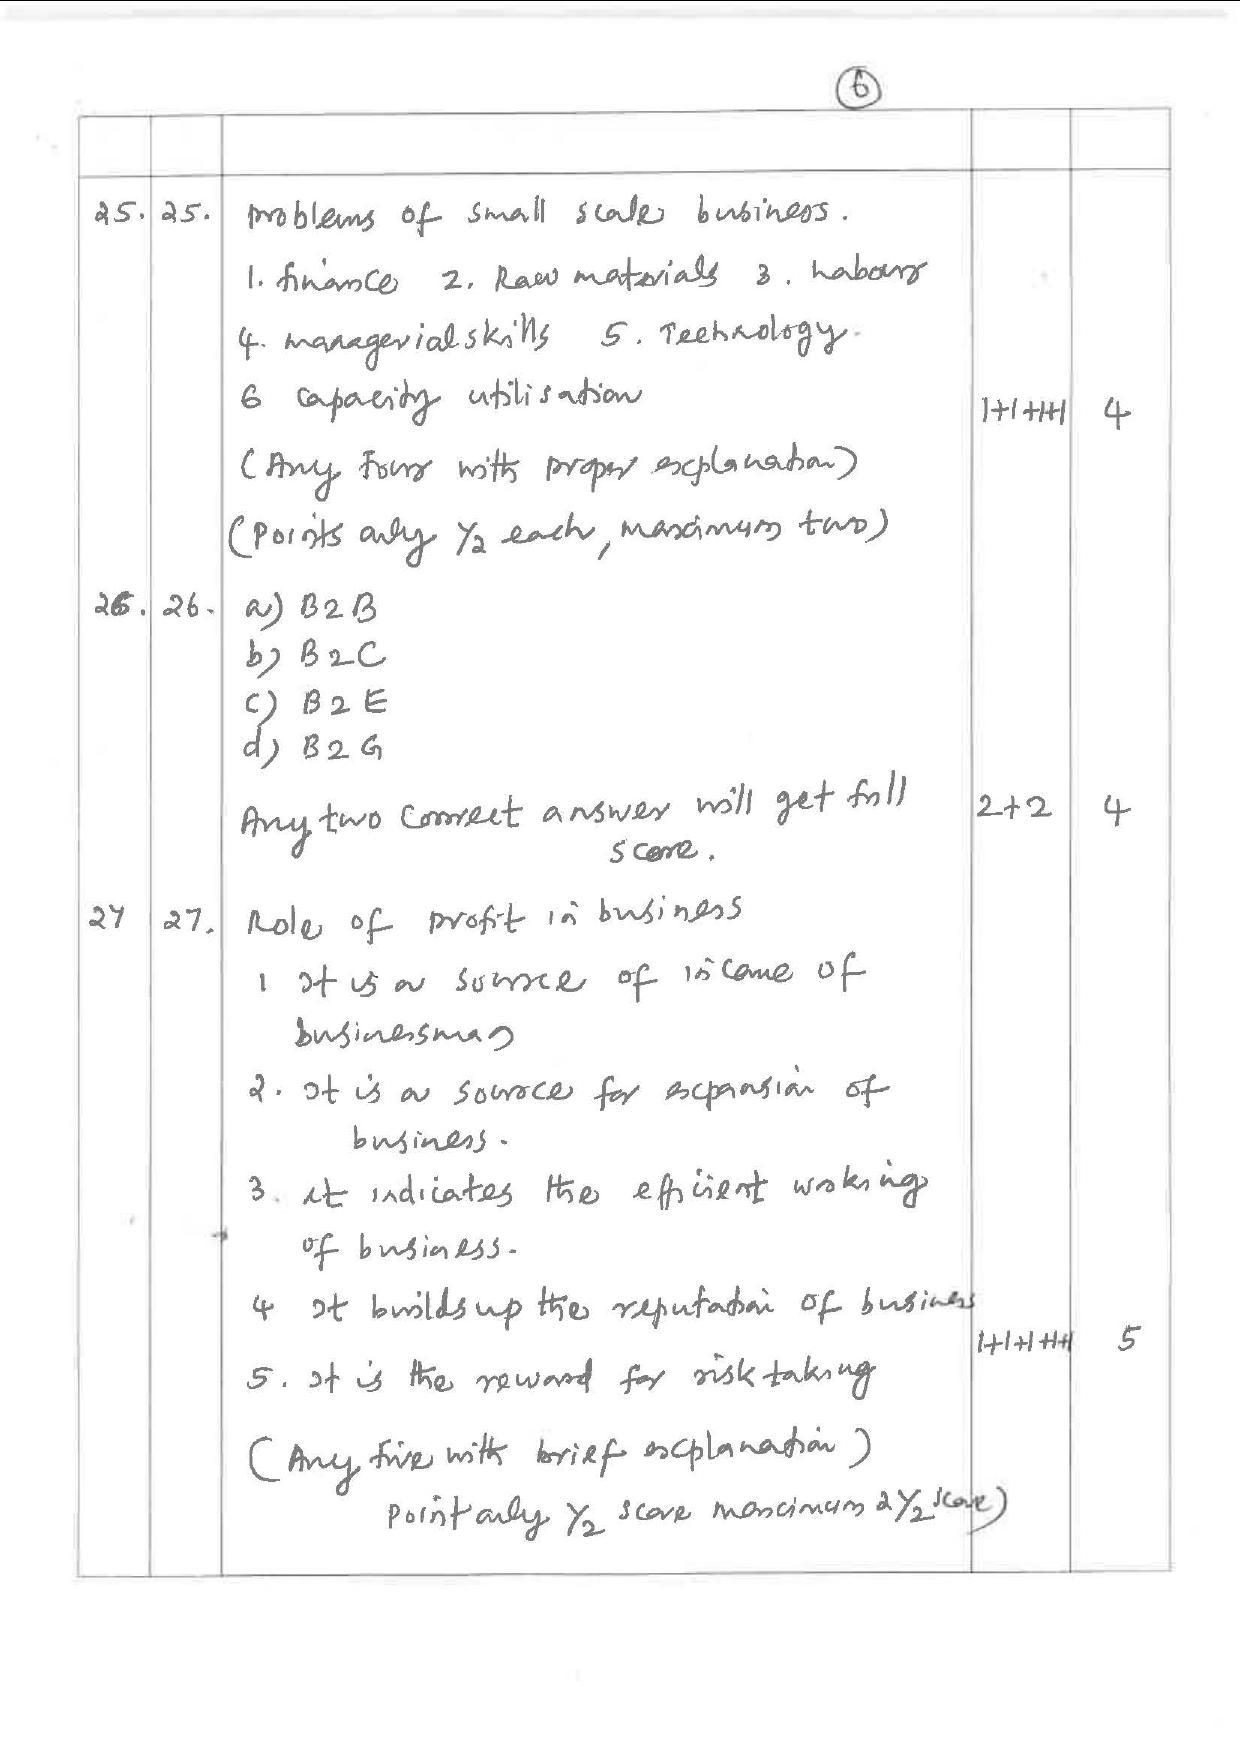 6
25. 25. Problems of small scale business.
1. finance 2. Raw materials 3. Labour
4. managerial skills 5. Technology.
6 capacity utilisation
1+1+1+1 4
(Any Four with proper explanation)
(Points only 1/2 each, maximum two)
26. 26. a) B2B
b) B2C
c) B2E
d) B2G
Any two correct answer will get full 2+2 4
score.
27 27. Role of profit in business
1 It is a source of income of
businessman
2. It is a source for expansion of
business.
3. it indicates the efficient working
of business.
4 It builds up the reputation of business
1+1+1+1+1 5
5. It is the reward for risk taking
(Any five with brief explanation)
Point only 1/2 score maximum 2 1/2 score)